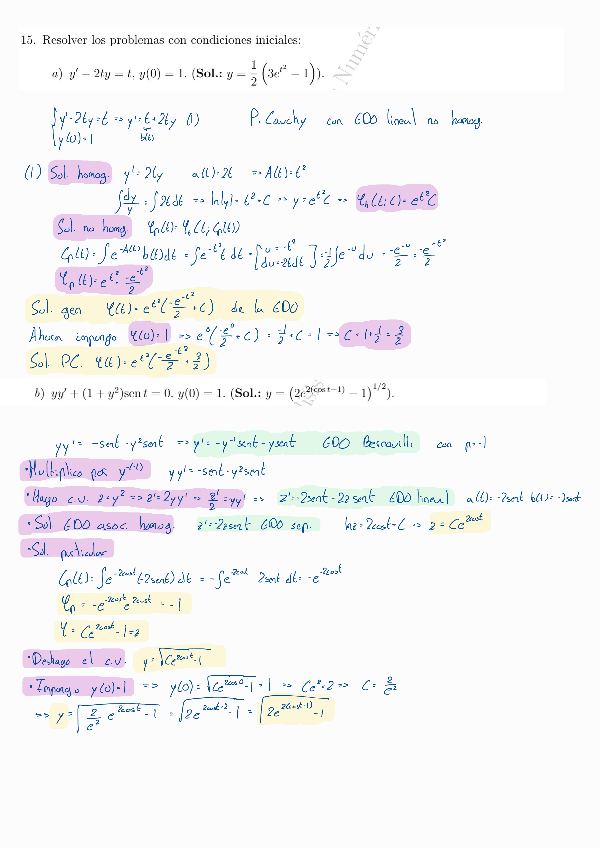 15. Resolver los problemas con condiciones iniciales:
a) y′ − 2ty = t, y(0) = 1. (Sol.: y = 1/2 (3e^{t²} − 1)).
Numéri
{ y' - 2ty = t => y' = t + 2ty (1) P. Cauchy con EDO lineal no homog.
y(0) = 1 b(t)
(1) Sol. homog. y' = 2ty a(t) = 2t => A(t) = t²
∫ dy/y = ∫ 2t dt => ln|y| = t² + C => y = e^{t²} C => φ_h(t; C) = e^{t²} C
Sol. no homog. φ_p(t) = φ_h(t, C_p(t))
C_p(t) = ∫ e^{-A(t)} b(t) dt = ∫ e^{-t²} t dt = [ u = -t² du = 2t dt ] = 1/2 ∫ e^{-u} du = -e^{-u}/2 = -e^{-t²}/2
φ_p(t) = e^{t²} · -e^{-t²}/2
Sol. gen φ(t) = e^{t²} ( -e^{-t²}/2 + C ) de la EDO
Ahora impongo φ(0) = 1 => e^0 ( -e^0/2 + C ) = -1/2 + C = 1 => C = 1 + 1/2 = 3/2
Sol. PC. φ(t) = e^{t²} ( -e^{-t²}/2 + 3/2 )
b) yy′ + (1 + y²)sen t = 0. y(0) = 1. (Sol.: y = (2e^{2(cos t−1)} − 1)^{1/2}).
yy' = -sent - y²sent => y' = -y^{-1}sent - ysent EDO Bernouilli con p=-1
· Multiplico por y^{-(-1)} yy' = -sent - y²sent
· Hago c.v. z = y² => z' = 2yy' => z'/2 = yy' => z' = -2sent - 2zsent EDO lineal a(t) = -2sent b(t) = -2sent
· Sol EDO asoc. homog. z' = -2zsent EDO sep. lnz = 2cost + C => z = Ce^{2cost}
· Sol. particular
C_p(t) = ∫ e^{-2cost} (-2sent) dt = -∫ e^{-2cost} 2sent dt = -e^{-2cost}
φ_p = -e^{-2cost} e^{2cost} = -1
φ = Ce^{2cost} - 1 = z
· Deshago el c.v. y = √(Ce^{2cost} - 1)
· Impongo y(0) = 1 => y(0) = √(Ce^{2cos0} - 1) = 1 => Ce² = 2 => C = 2/e²
=> y = √(2/e² e^{2cost} - 1) = √(2e^{2cost-2} - 1) = √(2e^{2(cost-1)} - 1)